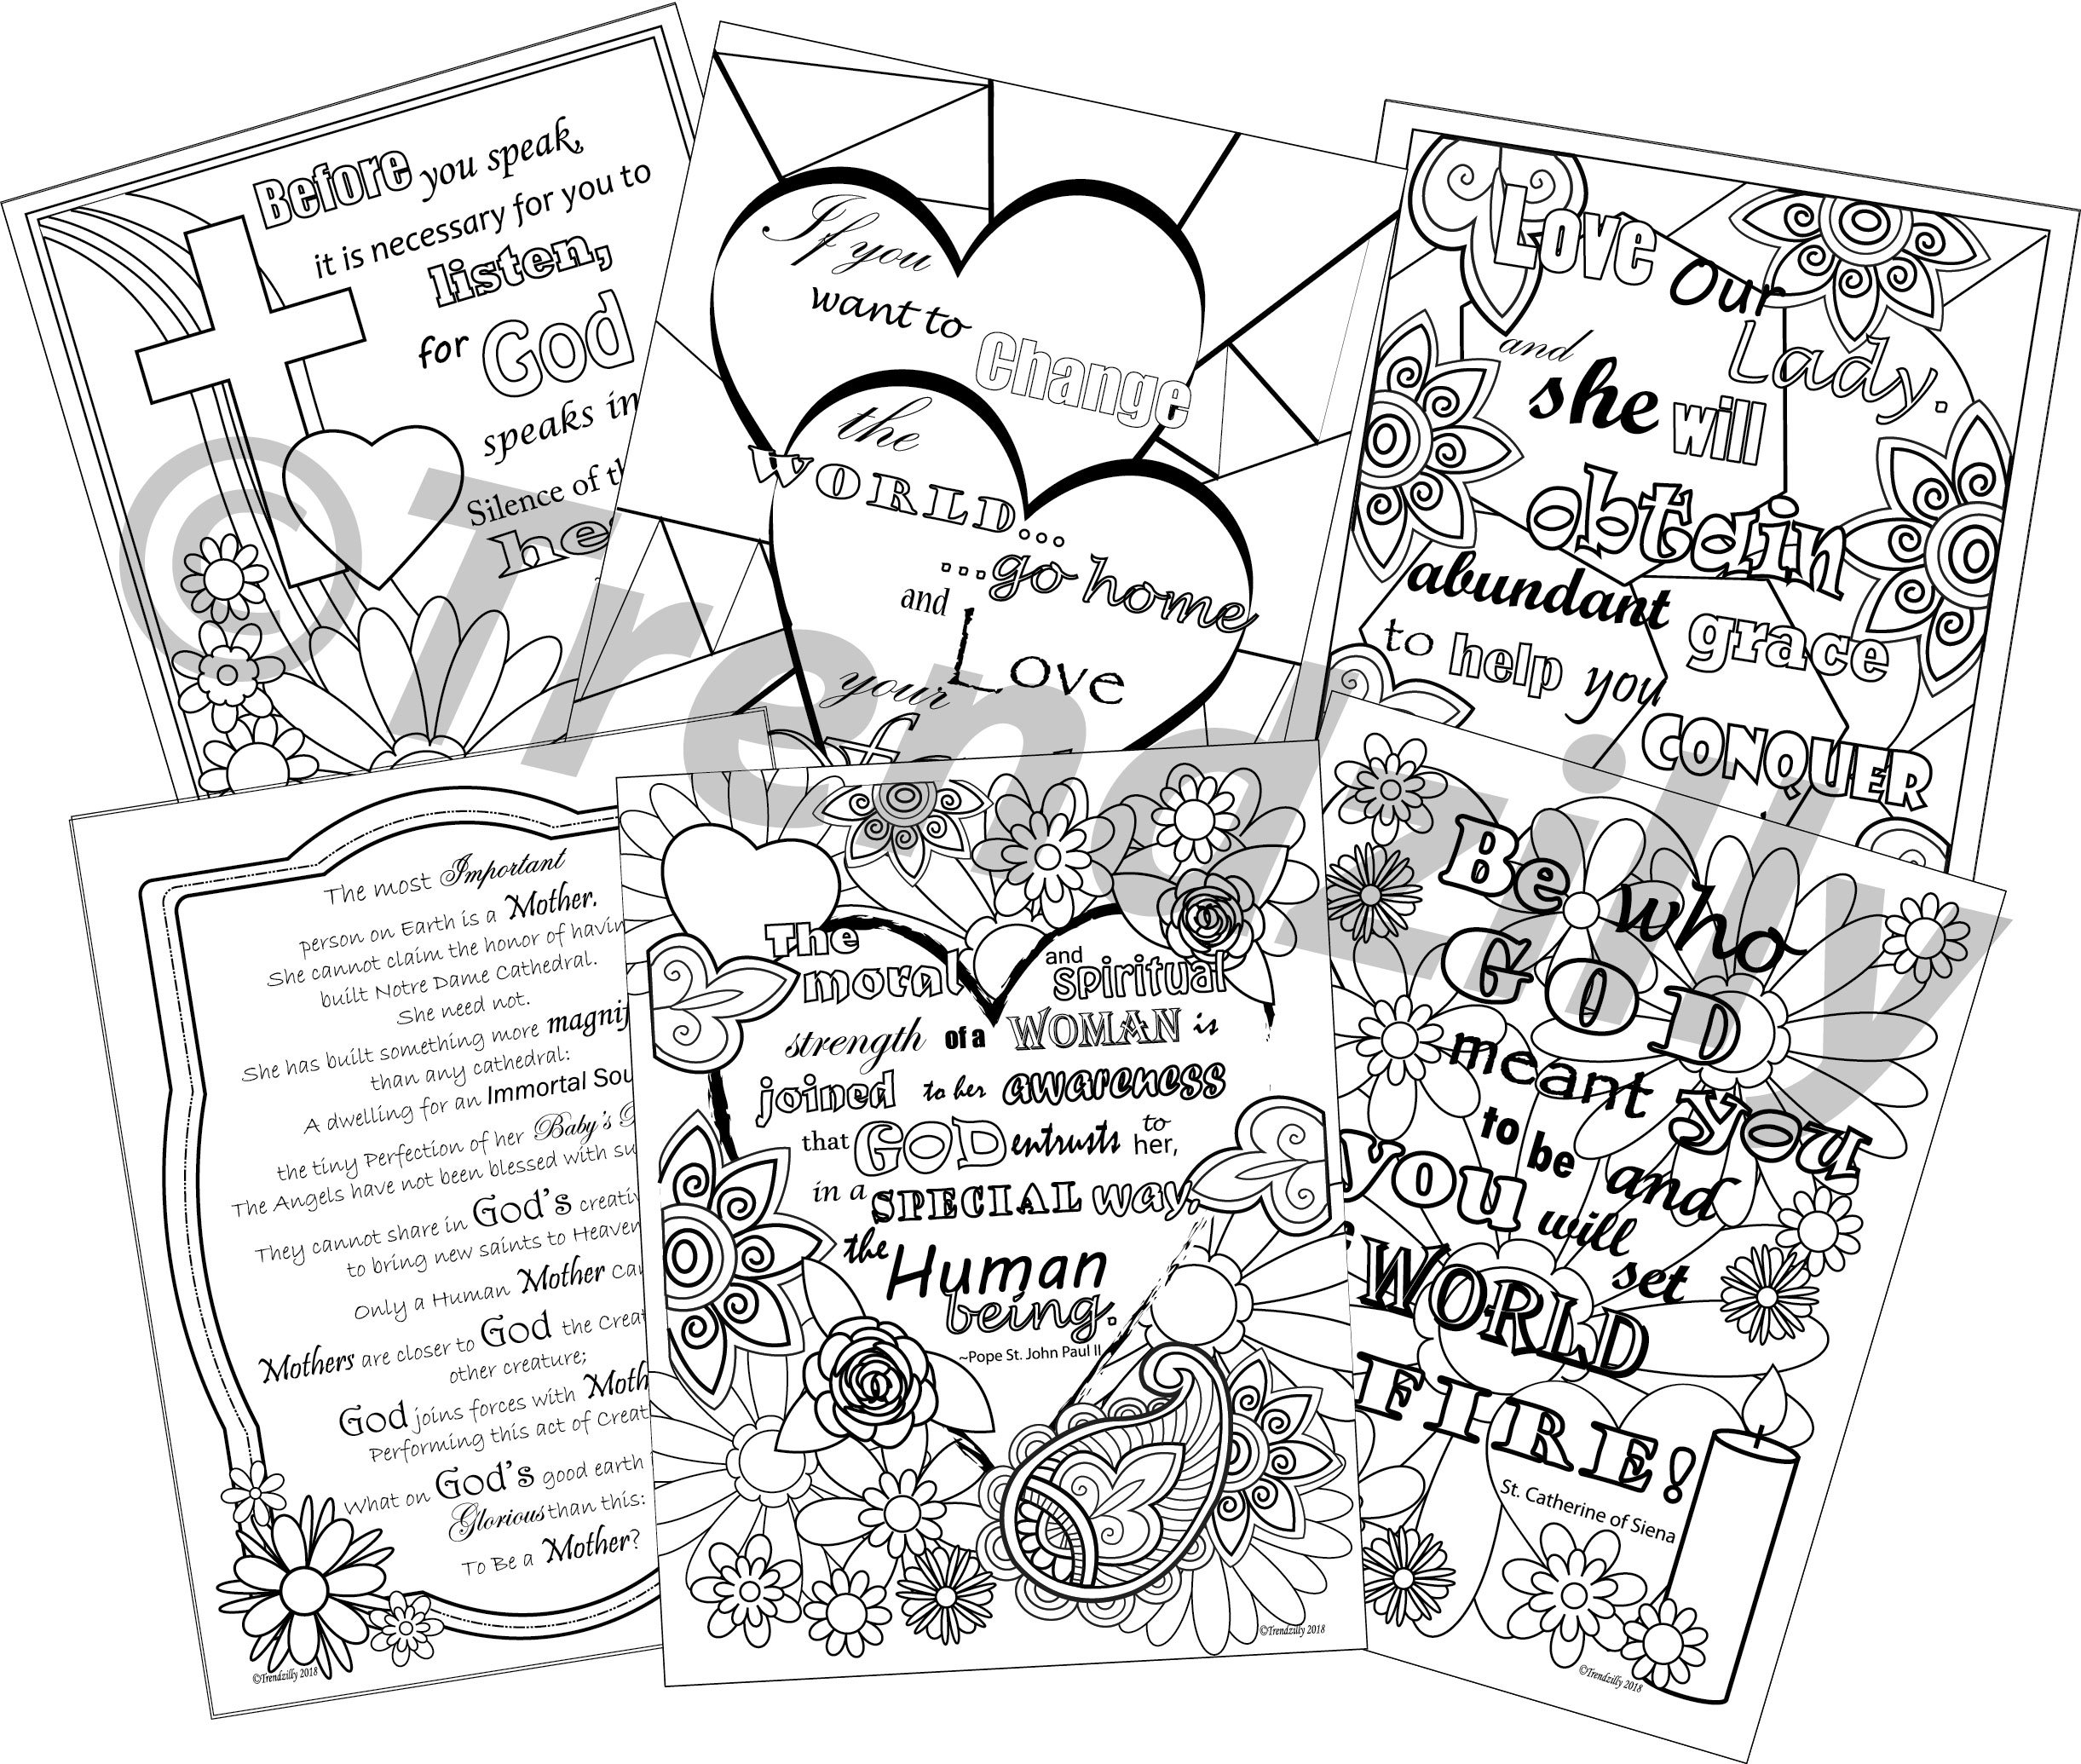 Before you speak,
it is necessary for you to
listen,
for God
speaks in
Silence of
If you
want to Change
the
WORLD...
...go home
and Love
your
Love Our
Lady.
and
she will
obtain
abundant grace
to help you
CONQUER
The most Important
person on Earth is a Mother.
She cannot claim the honor of
built Notre Dame Cathedral.
She need not.
She has built something more
than any cathedral:
A dwelling for an Immortal
the tiny Perfection of her Baby's
The Angels have not been blessed with
They cannot share in God's
to bring new saints to Heaven
Only a Human Mother
Mothers are closer to God the
other creature;
God joins forces with
Performing this act of
What on God's good earth
Glorious than this:
To Be a Mother?
©Trendzilly 2018
The
moral
and
spiritual
strength of a WOMAN is
joined to her awareness
that GOD entrusts to
her,
in a SPECIAL way,
the Human
being.
~Pope St. John Paul II
©Trendzilly 2018
Be who
GOD
meant you
to be and
you will
set
WORLD
FIRE!
St. Catherine of Siena
©Trendzilly 2018
©Trendzilly